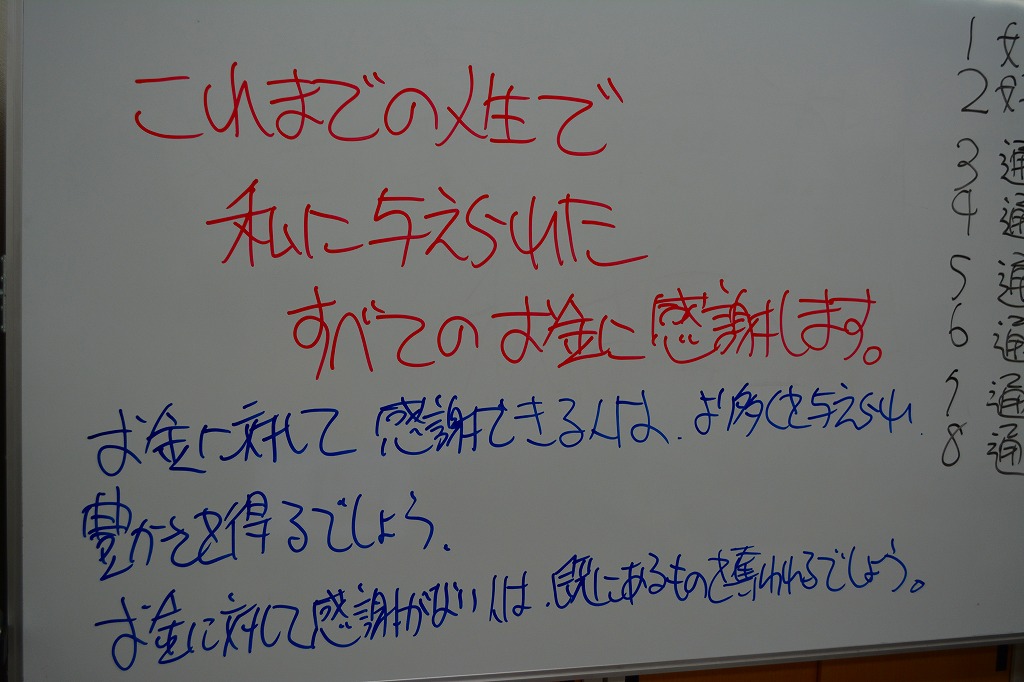 これまでの人生で
私に与えられた
すべてのお金に感謝します。
お金に対して感謝できる人は、より多くを与えられ、
豊かさを得るでしょう。
お金に対して感謝がない人は、既にあるものを奪われるでしょう。
1
2
3 通
4 通
5 通
6 通
7 通
8 通